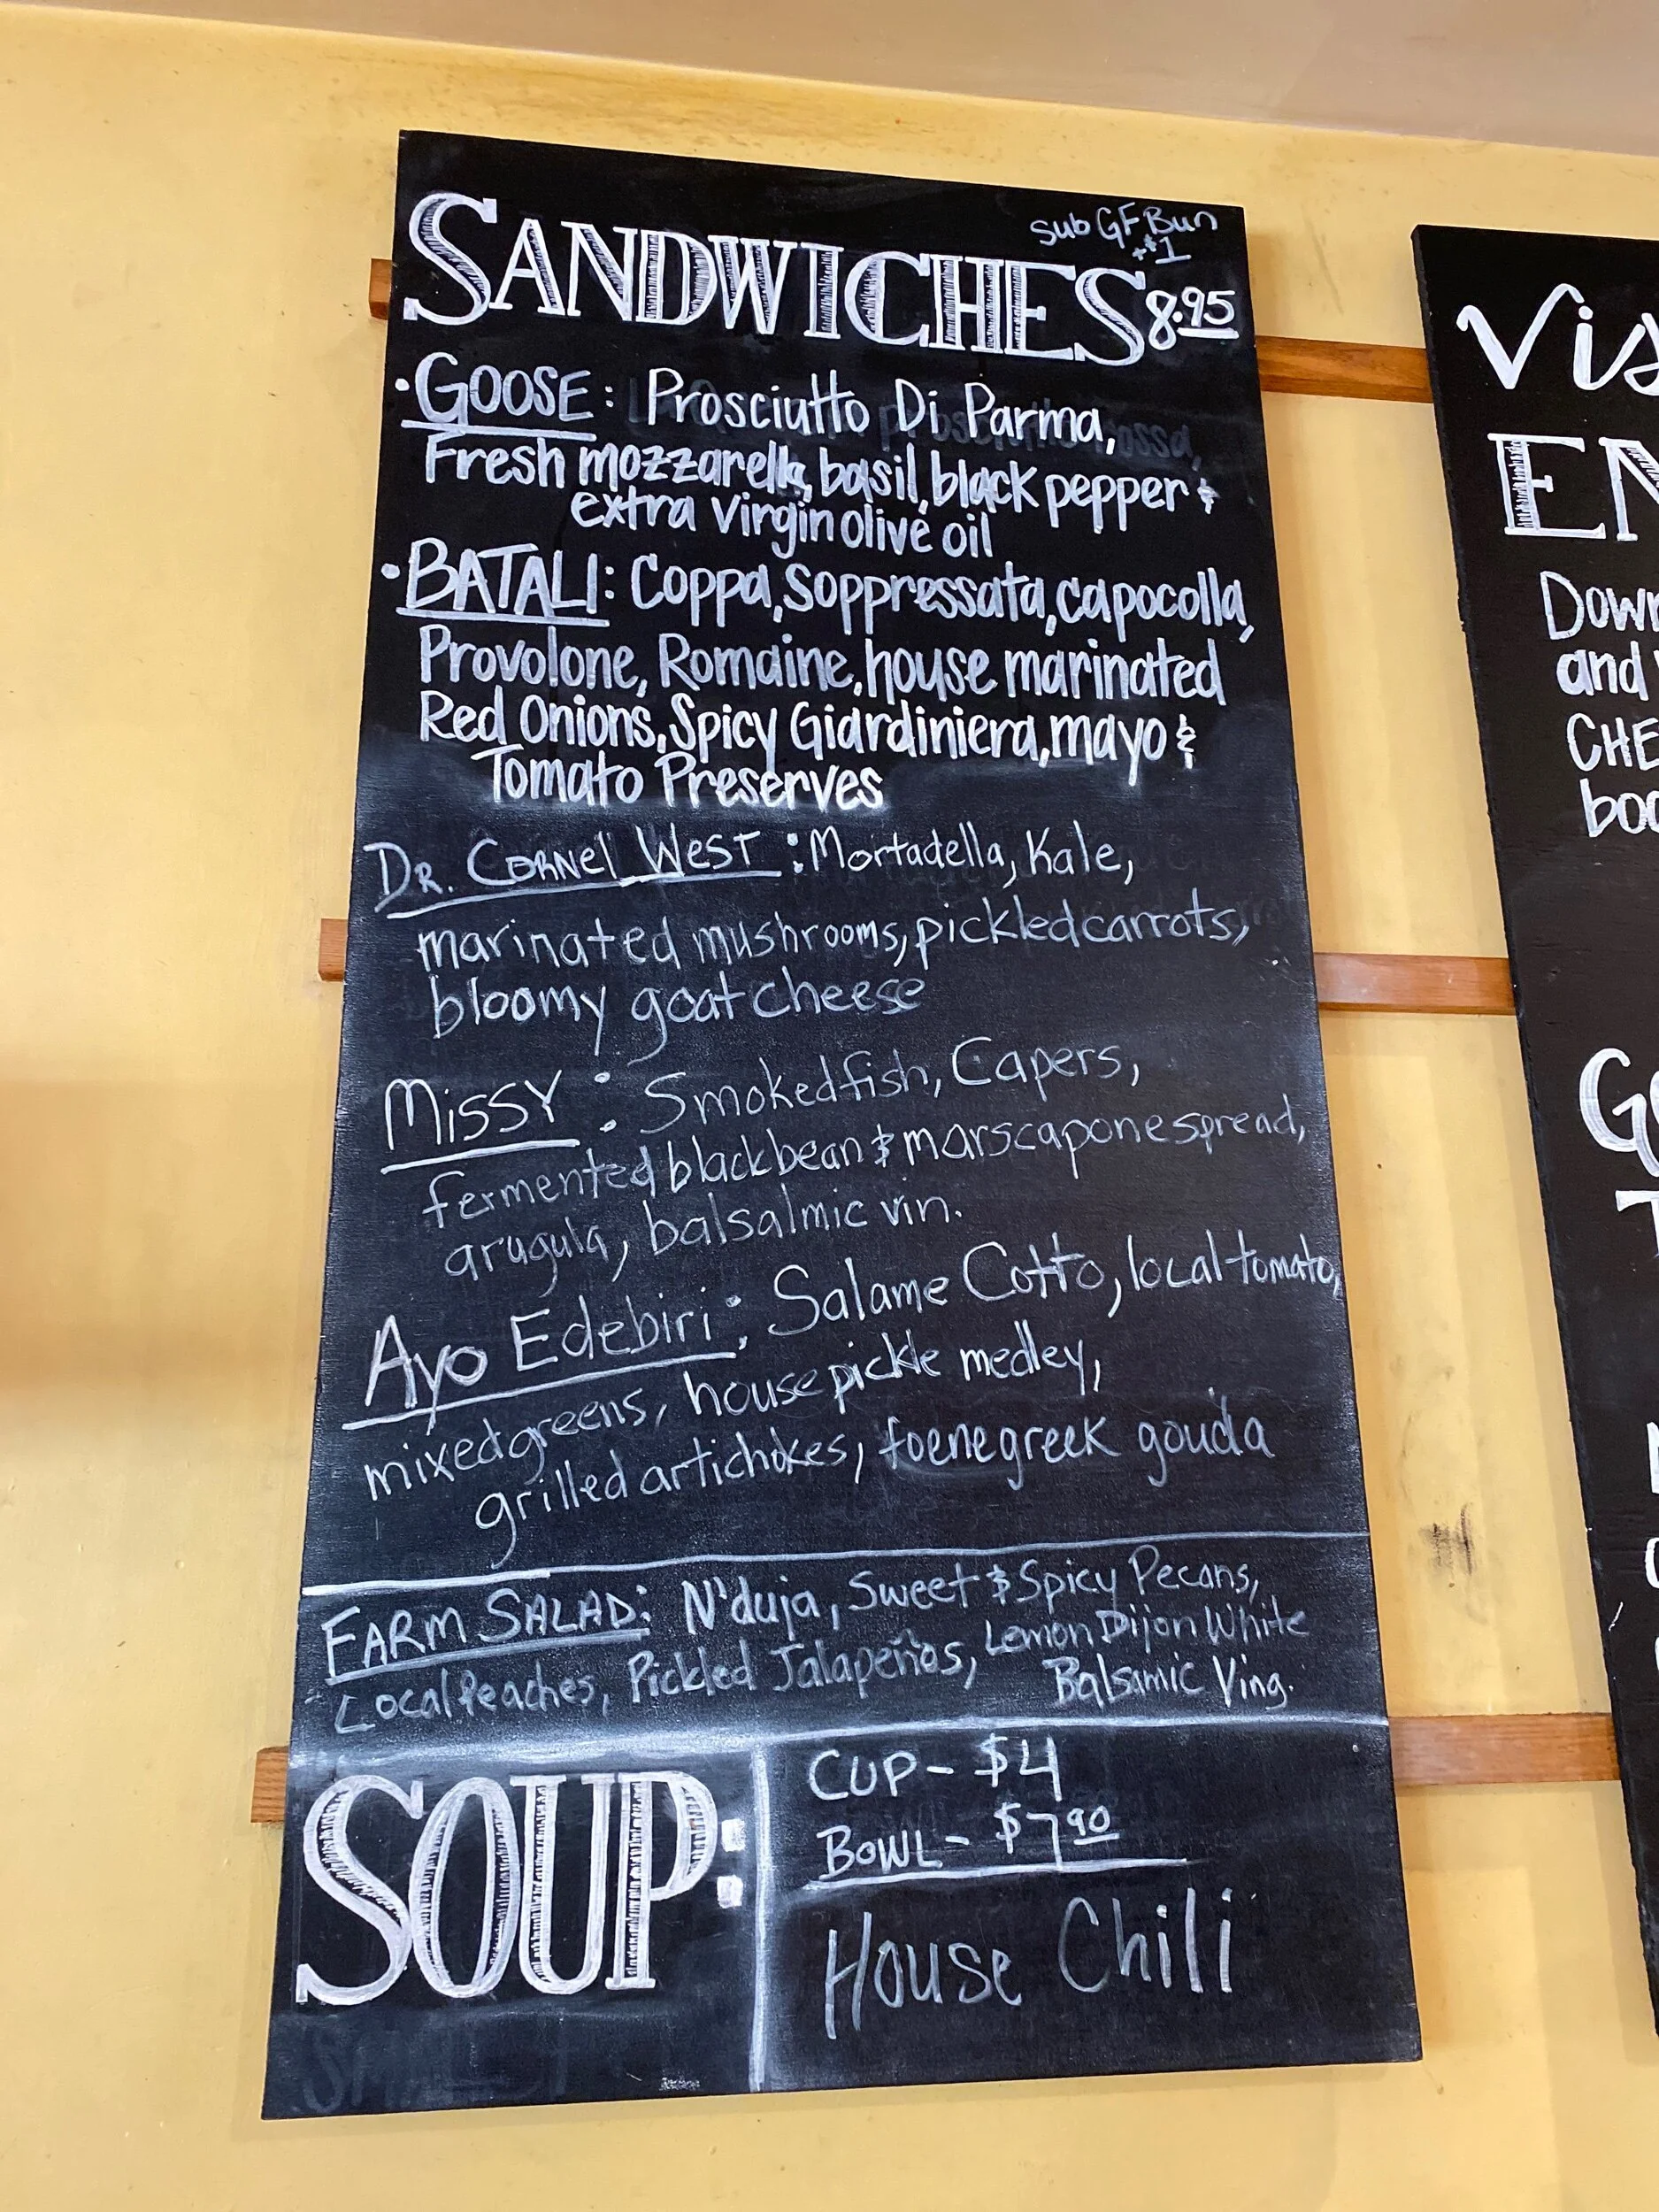 Sub GF Bun
+$1
SANDWICHES 8.95
• GOOSE: Prosciutto Di Parma,
Fresh mozzarella, basil, black pepper &
extra virgin olive oil
• BATALI: Coppa, Soppressata, capocolla,
Provolone, Romaine, house marinated
Red Onions, Spicy Giardiniera, mayo &
Tomato Preserves
DR. CORNEL WEST: Mortadella, Kale,
marinated mushrooms, pickled carrots,
bloomy goat cheese
MISSY: Smoked fish, Capers,
fermented black bean & marscapone spread,
arugula, balsalmic vin.
Ayo Edebiri: Salame Cotto, local tomato,
mixed greens, house pickle medley,
grilled artichokes, foenegreek gouda
FARM SALAD: N'duja, Sweet & Spicy Pecans,
Local Peaches, Pickled Jalapeños, Lemon Dijon White
Balsamic Ving.
SOUP:
CUP - $4
BOWL - $7.90
House Chili
Vis
EN
Down
and
CHE
boo